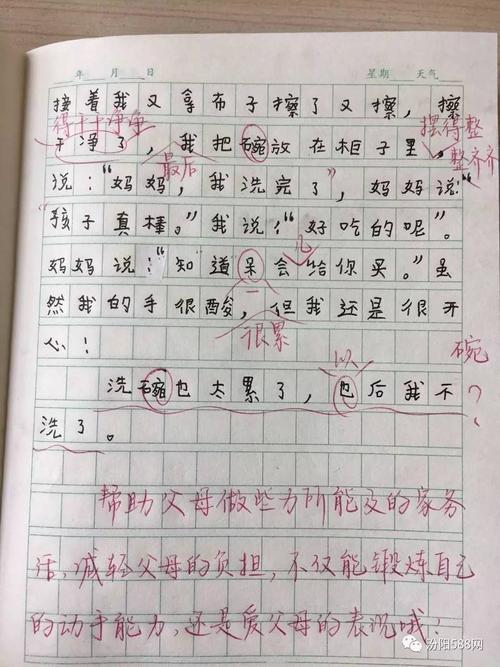 年 月 日 星期 天气
接着我又拿布子擦了又擦，擦
得干干净净 摆得整
干净了，我把碗放在柜子里，
最后 整齐齐
说：“妈妈，我洗完了”，妈妈说：
“孩子真棒。”我说：“好吃的呢”。
妈妈说：“知道呆会给你买。”虽
然我的手很酸，但我还是很开
很累
心！
以 碗
洗碗也太累了，也后我不
？
洗了。
帮助父母做些力所能及的家务
活，减轻父母的负担，不仅能锻炼自己
的动手能力，还是爱父母的表现哦！
汾阳588网